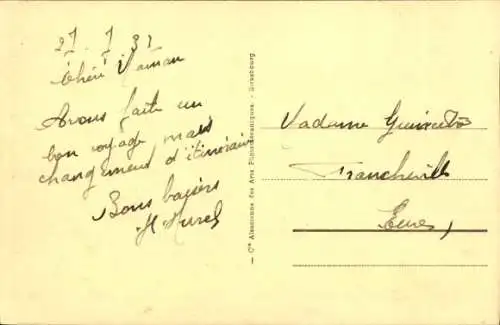 27. 7 32
Chère Maman
Avons faite un
bon voyage mais
changement d'itinéraire
Bons baisers
Cie Alsacienne des Arts Photomécaniques. - Strasbourg
Madame
Francheville
Eure